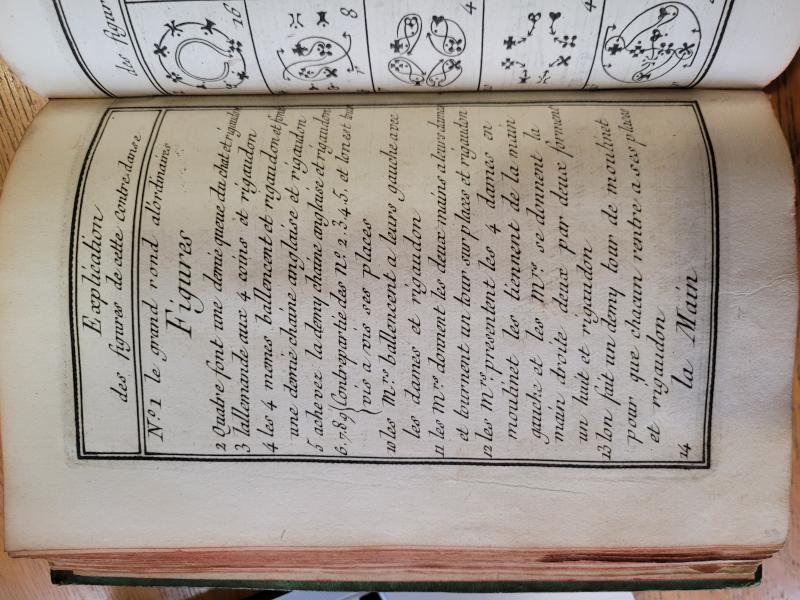 Explication
des figures de cette contredanse
Nº. 1 le grand rond alórdinaires
Figures
2 Quatre font une demie queue du chat et rigaudon
3 lallemande aux 4 coins et rigaudon
4 les 4 memes ballencent et rigaudon et font
une demie chaine anglaise et rigaudon
5 achevez la demy chaine anglaise et rigaudon
6. 7. 8. 9 Contrepartie des nº. 2. 3. 4. 5. et lon est
vis a vis ses places
10 les Mrs. ballencent a leurs gauche avec
les dames et rigaudon
11 les Mrs donnent les deux mains a leurs dames
et tournent un tour sur places et rigaudon
12 les Mrs presentent les 4 dames en
moulinet les tiennent de la main
gauche et les Mrs. se donnent la
main droite deux par deux forment
un huit et rigaudon
13 lon fait un demy tour de moulinet
pour que chacun rentre a ses places
et rigaudon
14 la Main
des figur
16
8
4
4